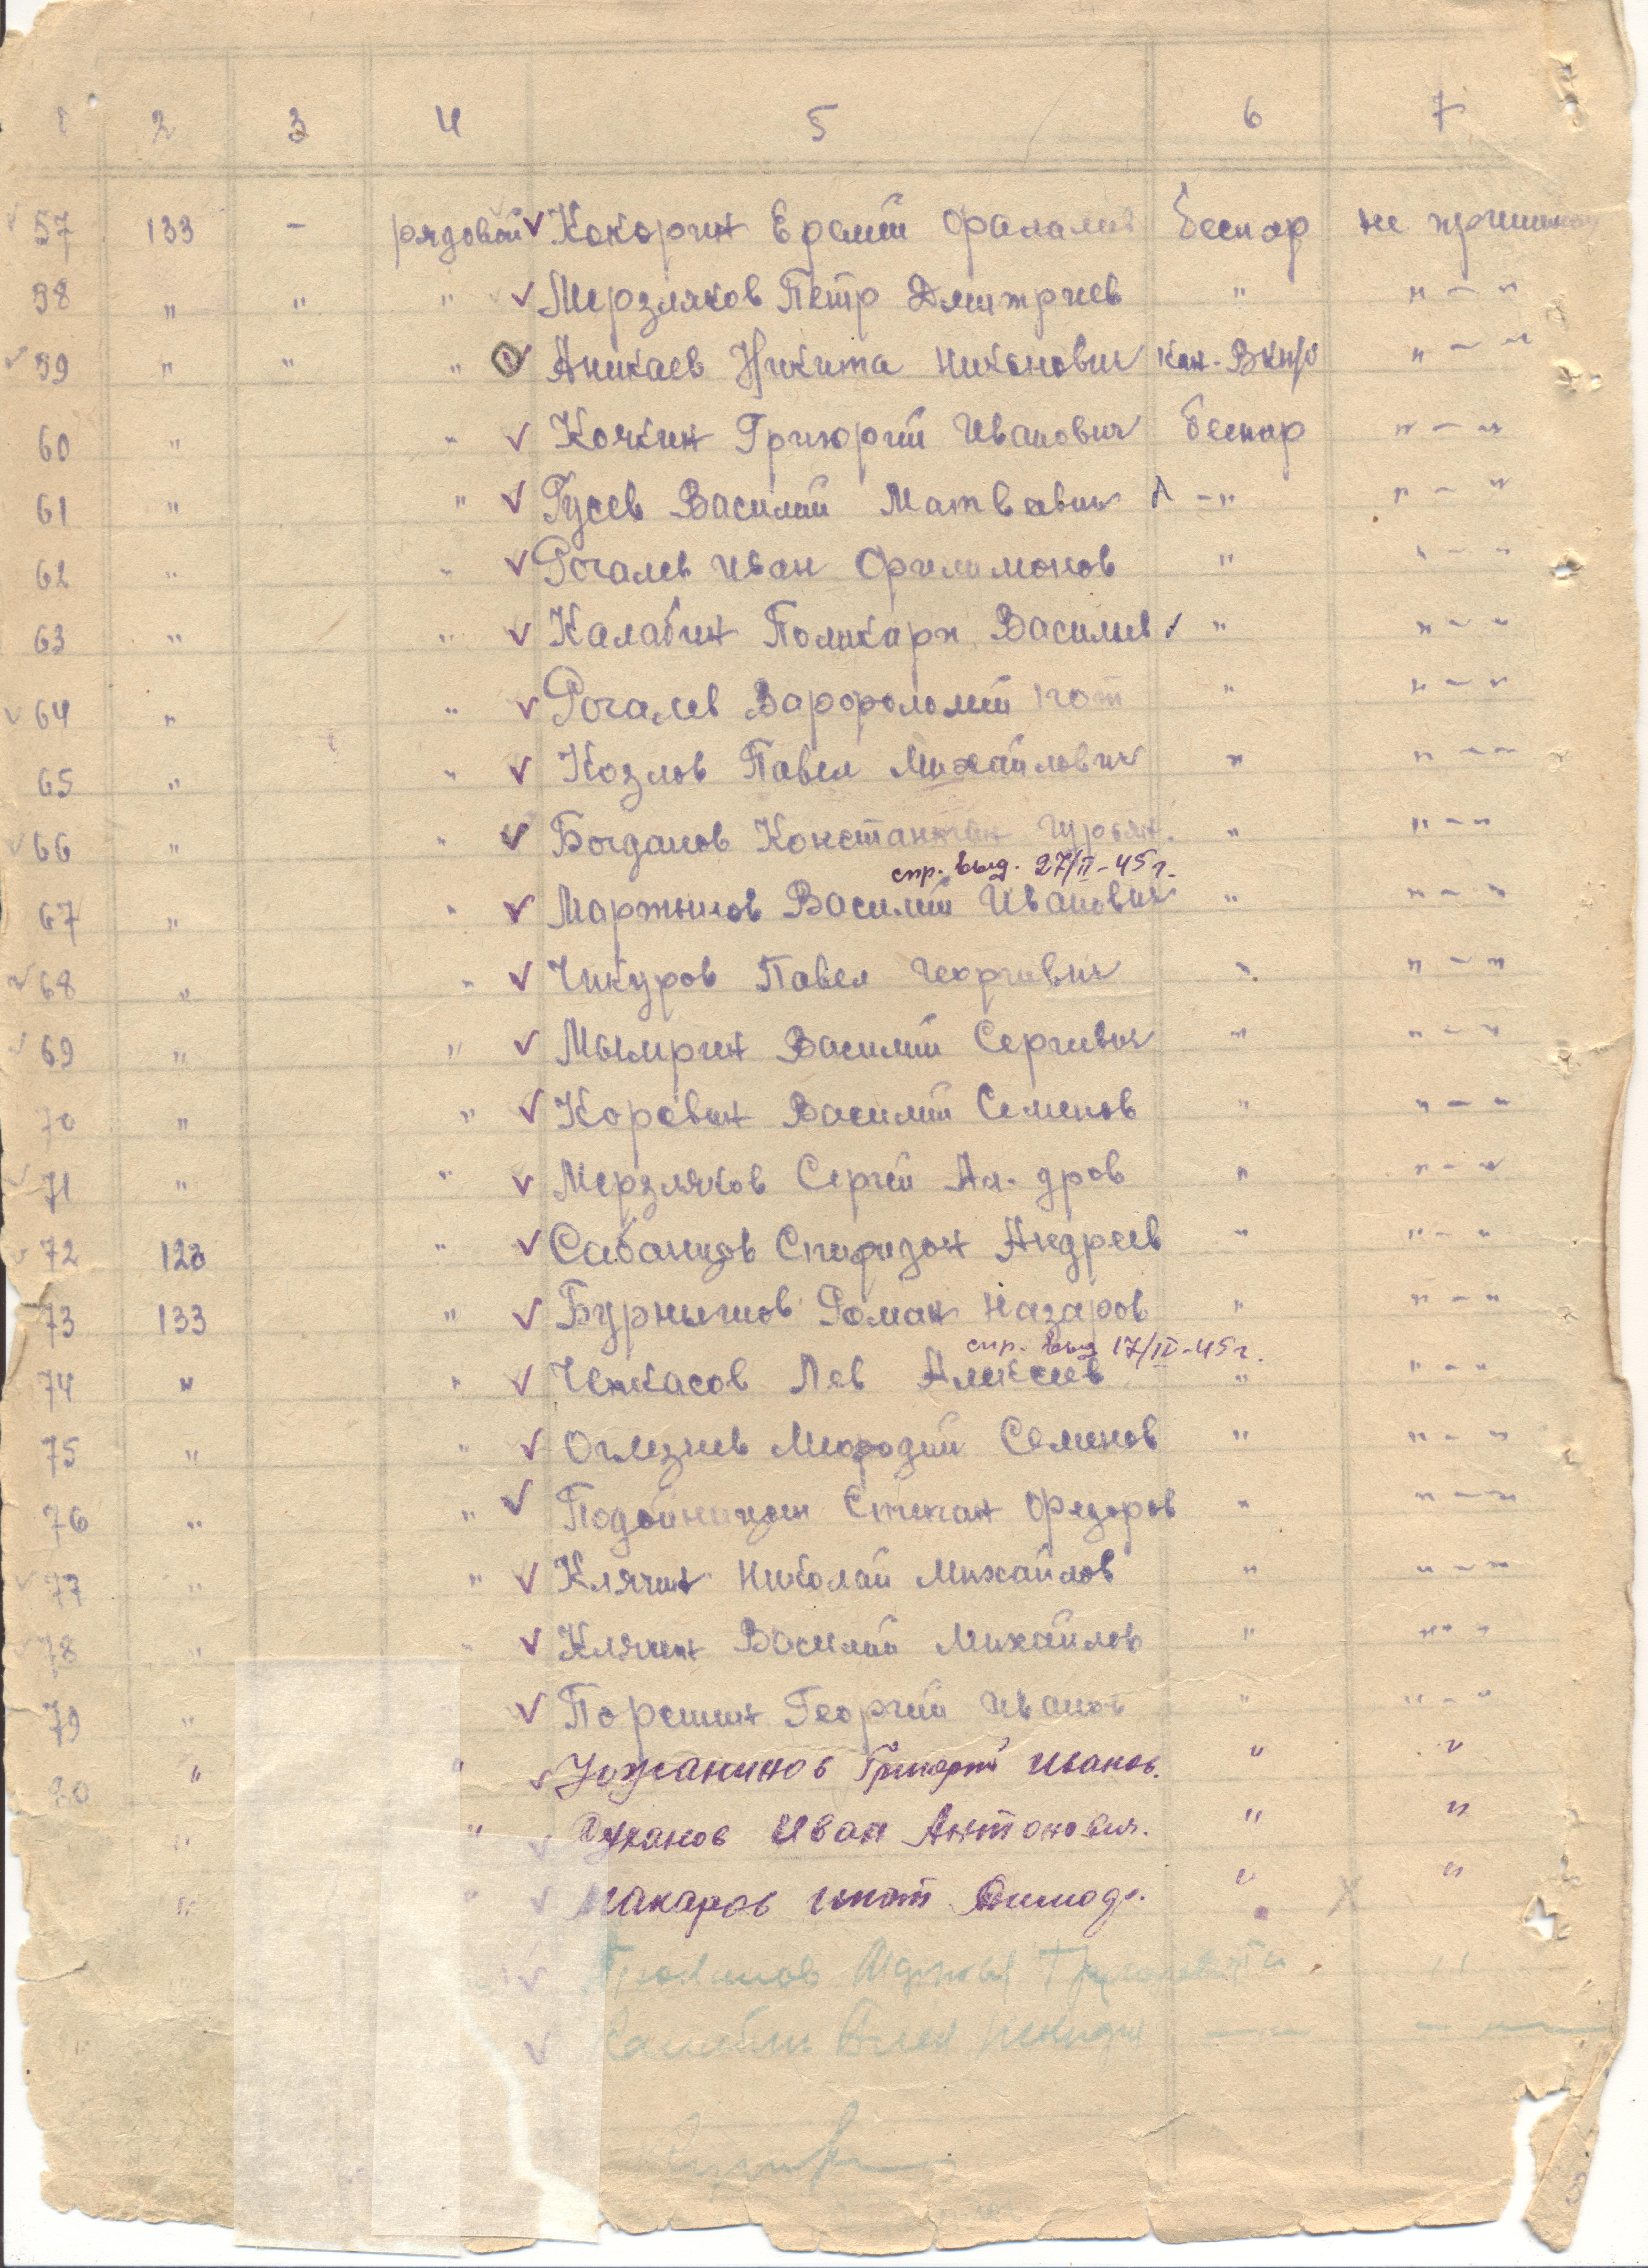 1 2 3 4 5 6 7
57 133 - рядовой Кокорин Ермий Фалалев беспар не
58 " " " Мерзляков Петр Дмитриев " " - "
59 " " " Аникаев Никита Никонович кан. ВКП/б " - "
60 " " Кочкин Григорий Иванович беспар " - "
61 " " Гусев Василий Матвевич - " " - "
62 " " Рогалев Иван Филимонов " " - "
63 " " Калабин Поликарп Василев " " - "
64 " " Рогалев Варфоломий " " - "
65 " " Козлов Павел Михайлович " " - "
66 " " Богданов Константин Гурьян. " " - "
спр. выд. 27/II-45 г.
67 " " Мартынов Василий Иванович " " - "
68 " " Чикуров Павел Георгивич " " - "
69 " " Мымрин Василий Сергивич " " - "
70 " " Коревин Василий Семенов " " - "
71 " " Мерзляков Сергей Ал-дров " " - "
72 123 " Сабанцов Спиридон Андреев " " - "
73 133 " Бурнышов Роман Назаров " " - "
спр. выд 17/III-45 г.
74 " " Черкасов Лев Алексеев " " - "
75 " " Оглезнев Мефодий Семенов " " - "
76 " " Подойницин Степан Федоров " " - "
77 " " Клячин Николай Михайлов " " - "
78 " " Клячин Василий Михайлов " " - "
79 " Поршин Георгий Иванов " " - "
80 " " Ужанинов Григорий Иванов. " "
" " Иван Антонович. " "
" " Макаров " "